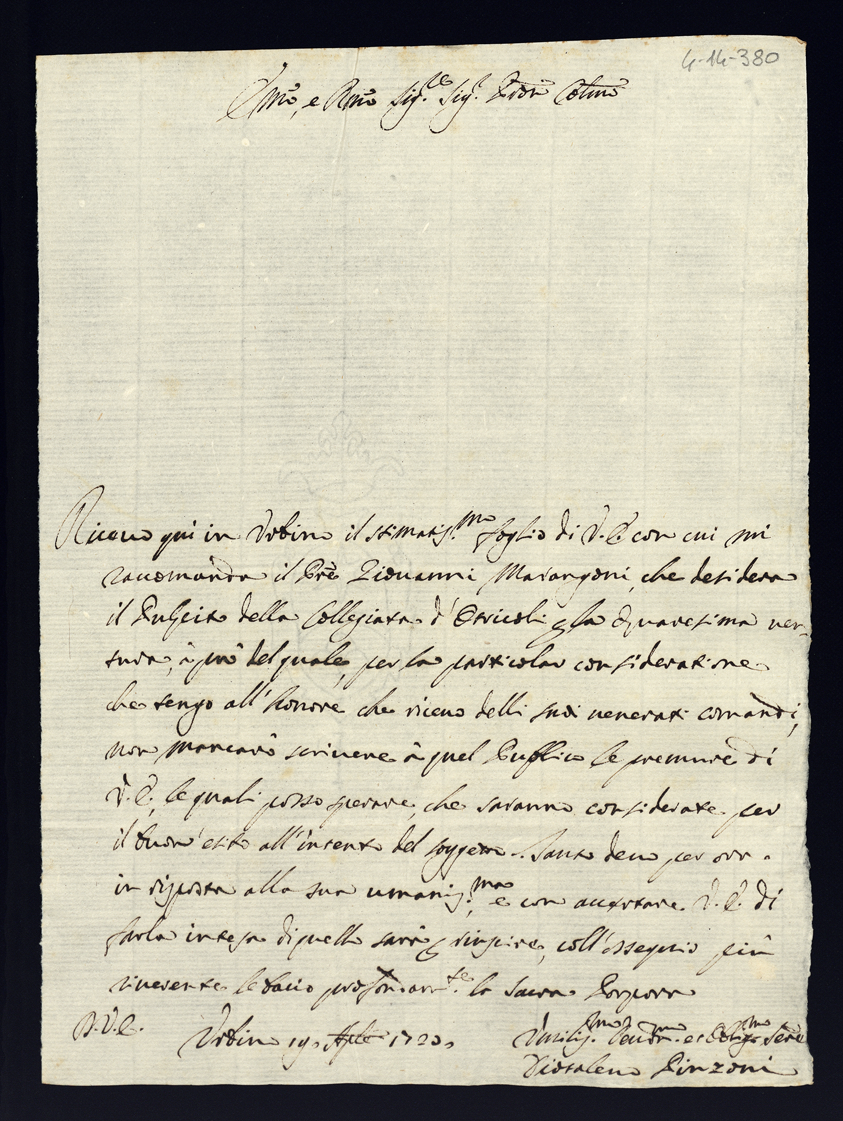 4-14-380
Emo, e Rmo Sig.re Sig.r Pron Colmo
Riceuo qui in Urbino il stimatiss.mo foglio di V.E. con cui mi
racomanda il Pre Giouanni Marangoni, che desidera
il Pulpito della Collegiata d'Otricoli p la Quaresima uen-
tura, à prò del quale, per la particolar consideratione
che tengo all'honore che riceuo delli suoi uenerati comandi,
non mancarò scriuere à quel Publico le premure di
V.E., le quali posso sperare, che saranno considerate per
il buon'esito all'intento del soggetto. Tanto deuo per ora
in risposta alla sua umaniss.ma, e con accertare V.E. di
farla intesa di quello sarà p riuscire, coll'ossequio più
riuerente le bacio profondam.te la Sacra Porpora
D.V.E.
Urbino 19 Aple 1720
Vmiliss.mo Deuot.mo et Obligo.mo Sere
Diotaleuo Pinzoni